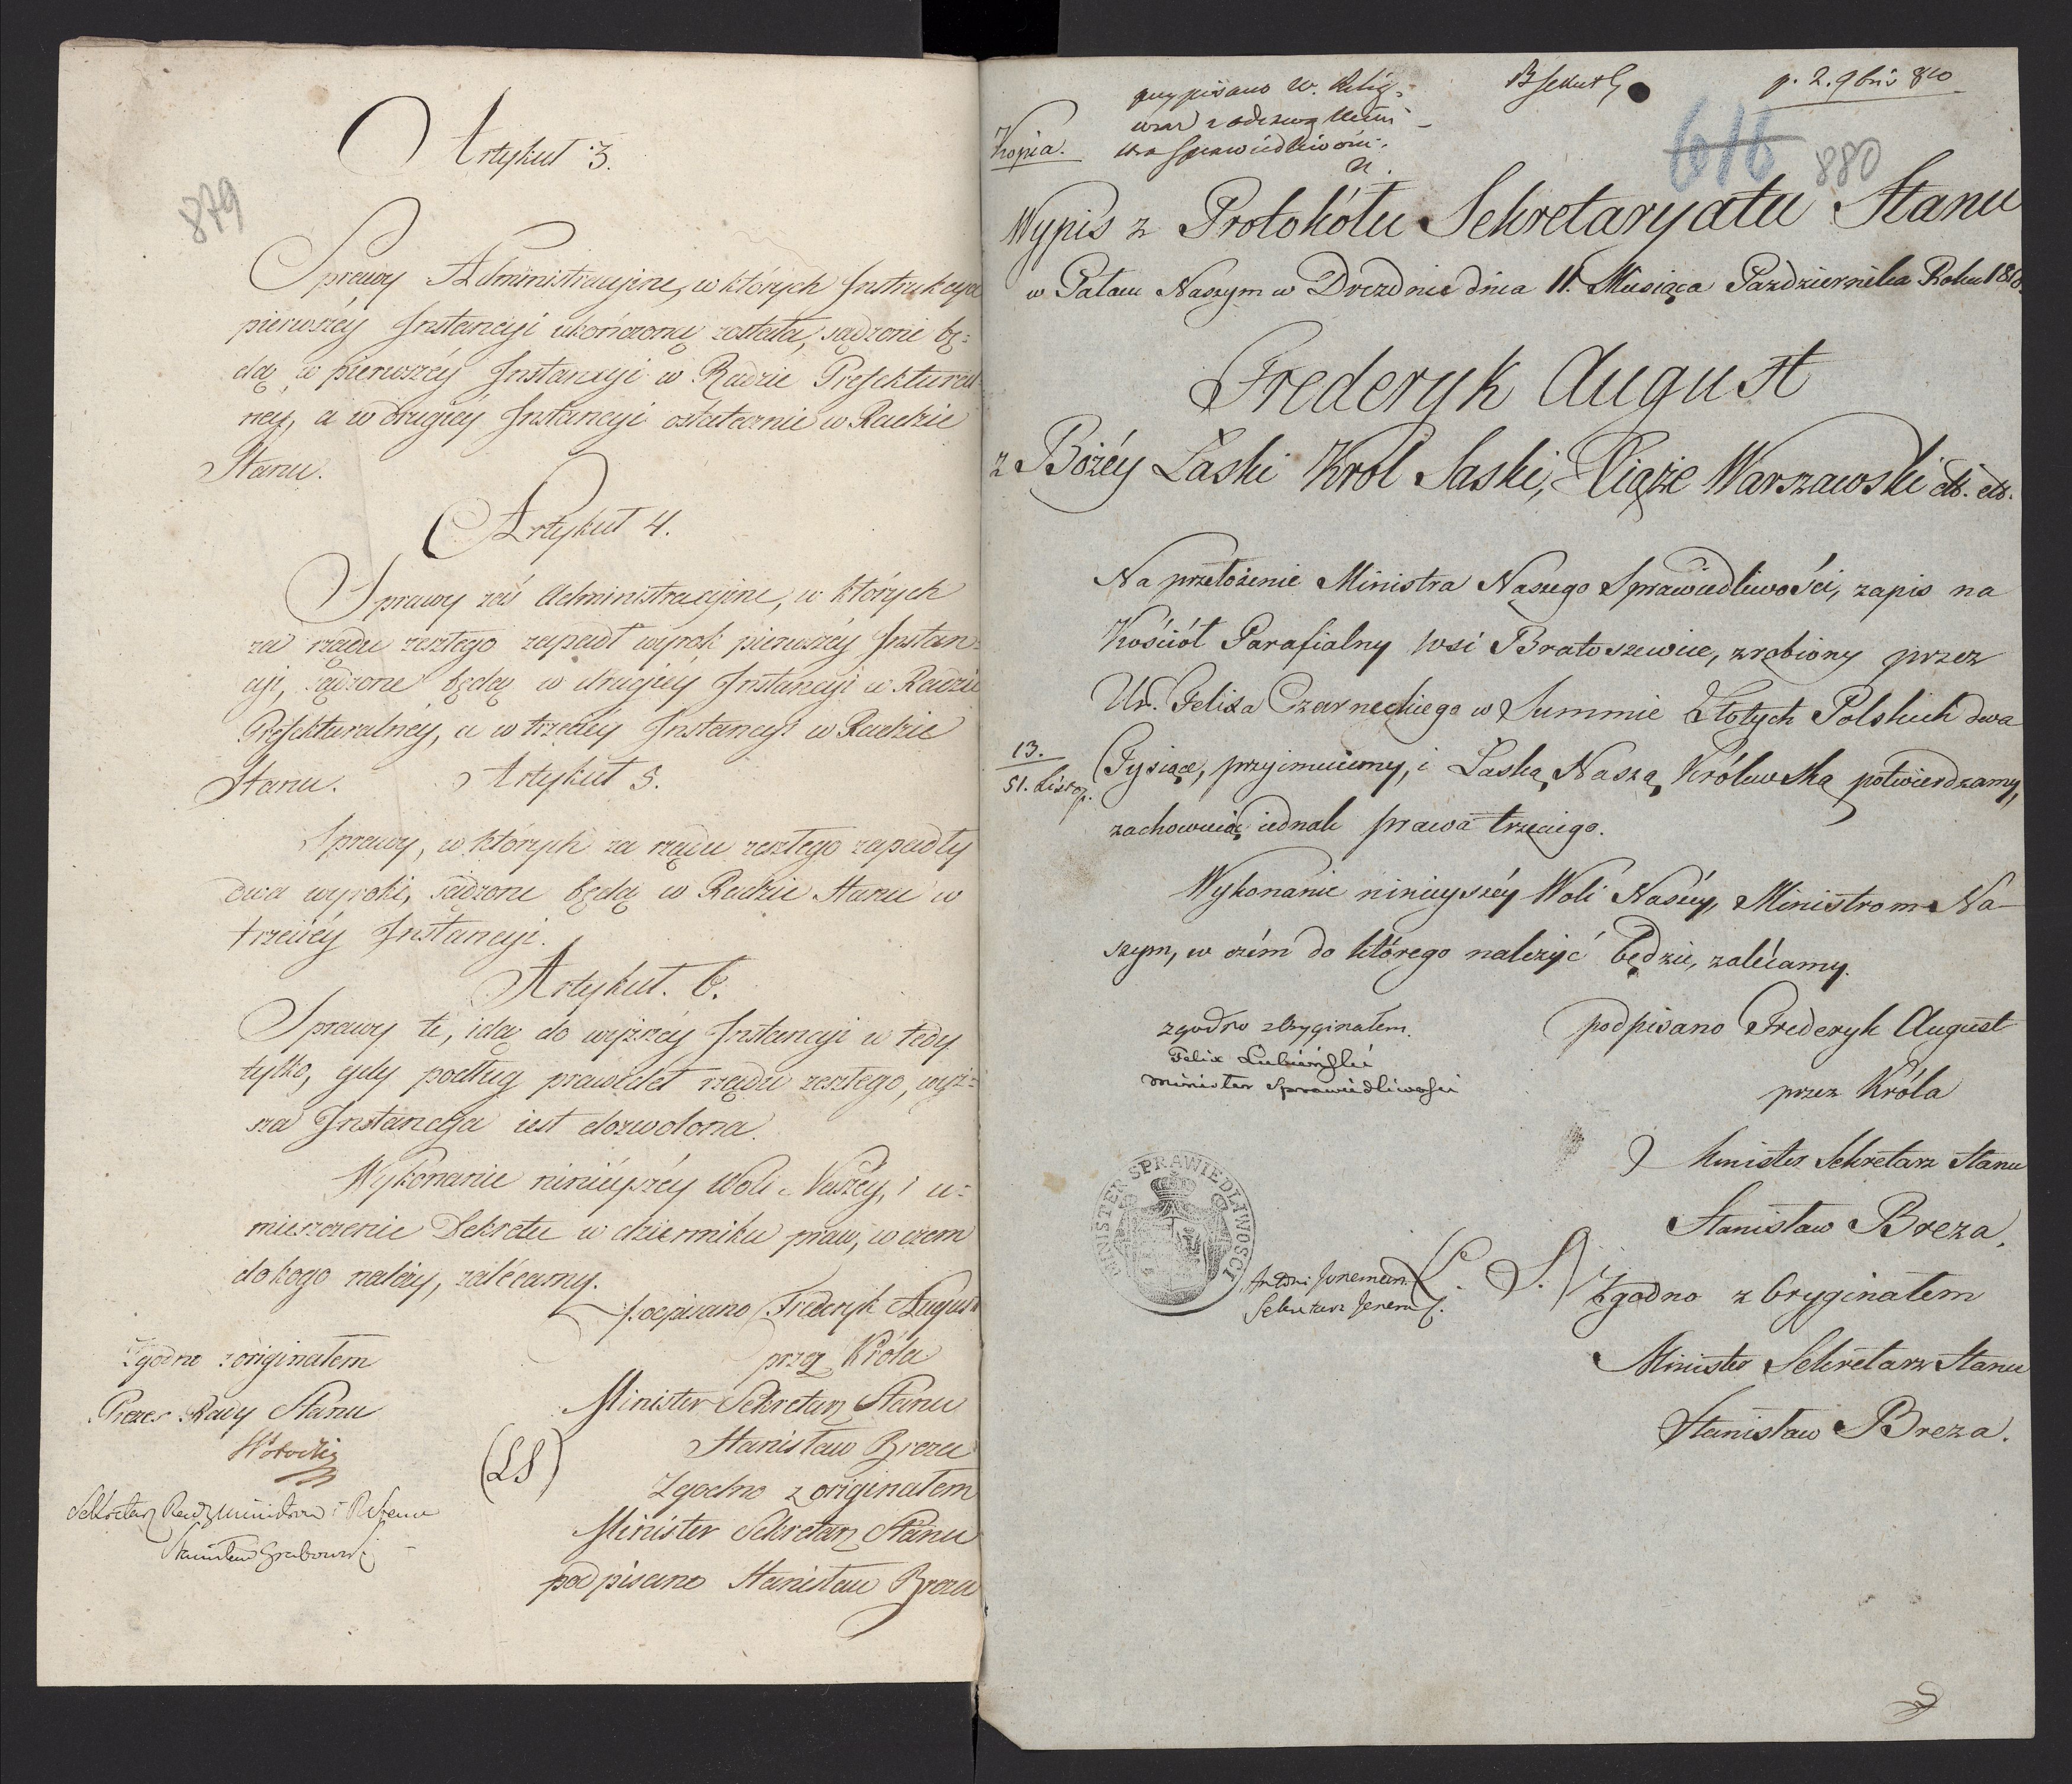 879
Artykuł 3.
Sprawy Administracyine, w których Instrukcya
pierwszéy Instancyi ukończoną została, sądzone bę=
dą w pierwszéy Instancyi w Radzie Prefektural
néy, a w drugiéy Instancyi ostatecznie w Radzie
Stanu.
Artykuł 4.
Sprawy zaś Administracyine, w których
za rządu zeszłego zapadł wyrok pierwszéy Instan=
cyi, sądzone będą w drugiéy Instancyi w Radzie
Prefekturalnéy, a w trzeciéy Instancyi w Radzie
Stanu.
Artykuł 5.
Sprawy, w których za rządu zeszłego zapadły
dwa wyroki, sądzone będą w Radzie Stanu w
trzeciéy Instancyi.
Artykuł. 6.
Sprawy te, idą do wyższéy Instancyi w tedy
tylko, gdy podług prawideł rządu zeszłego, wyż=
sza Instancya iest dozwolona.
Wykonanie ninieyszéy Woli Naszéy, i u=
mieszczenie Dekretu w dzienniku praw, w czem
do kogo należy, zalécamy.
podpisano Frederyk August
przez Króla
Minister Sekretarz Stanu
Stanisław Breza
(LS)
Zgodno z originałem
Minister Sekretarz Stanu
podpisano Stanisław Breza
Zgodno z originałem
Prezes Rady Stanu
Sekretarz Rady Ministrów
Stanisław Grabowski
Kopia.
przypisano w. Relig.
wraz z odezwą Mini
stra Sprawiedliwości.
p. 2. 9bris 810
616
880
Wypis z Protokółu Sekretaryatu Stanu
w Pałacu Naszym w Dreznie dnia 11. Miesiąca Pazdziernika Roku 1810.
Frederyk August
z Bożéy Łaski Król Saski, Xiąże Warszawski etc. etc.
Na przełożenie Ministra Naszego Sprawiedliwości, zapis na
Kościół Parafialny wsi Bratoszewice, zrobiony przez
Ur. Felixa Czarneckiego w Summie Złotych Polskich dwa
Tysiące, przyimuiemy, i Łaską Naszą Królewską potwierdzamy,
13.
51. Listop.
zachowuiąc iednak prawa trzeciego.
Wykonanie ninieyszéy Woli Naszéy, Ministrom Na-
szym, w czém do którego należyć będzie, zalécamy.
podpisano Frederyk August
przez Króla
Minister Sekretarz Stanu
Stanisław Breza,
L. S.
Zgodno z Oryginałem
Minister Sekretarz Stanu
Stanisław Breza.
zgodno z Oryginałem.
Felix Lubieński
Minister Sprawiedliwości
MINISTER SPRAWIEDLIWOSCI
Sekretarz Jener.